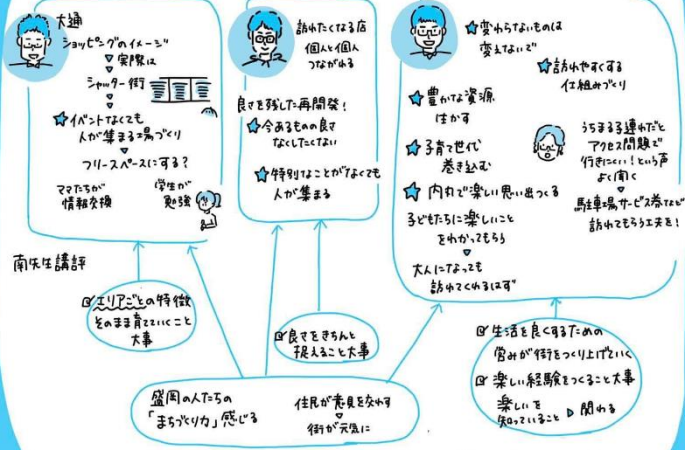 大通
ショッピングのイメージ
実際は
シャッター街
イベントなくても
人が集まる場づくり
フリースペースにする?
ママたちが
情報交換
学生が
勉強
訪れたくなる店
個人と個人
つながれる
良さを残した再開発!
今あるものの良さ
なくしたくない
特別なことがなくても
人が集まる
変わらないものは
変えないで
豊かな資源
活かす
子育て世代
巻き込む
内丸で楽しい思い出つくる
子どもたちに楽しいこと
をわかってもらう
大人になっても
訪れてくれるはず
訪れやすくする
仕組みづくり
うちまる子連れだと
アクセス問題で
行きにくい!という声
よく聞く
駐車場サービス券など
訪れてもらう工夫を!
南先生講評
エリアごとの特徴
そのまま育てていくこと
大事
良さをきちんと
捉えること大事
生活を良くするための
営みが街をつくり上げていく
楽しい経験をつくること大事
楽しいを
知っていること
関わる
盛岡の人たちの
「まちづくり力」感じる
住民が意見を交わす
街が元気に